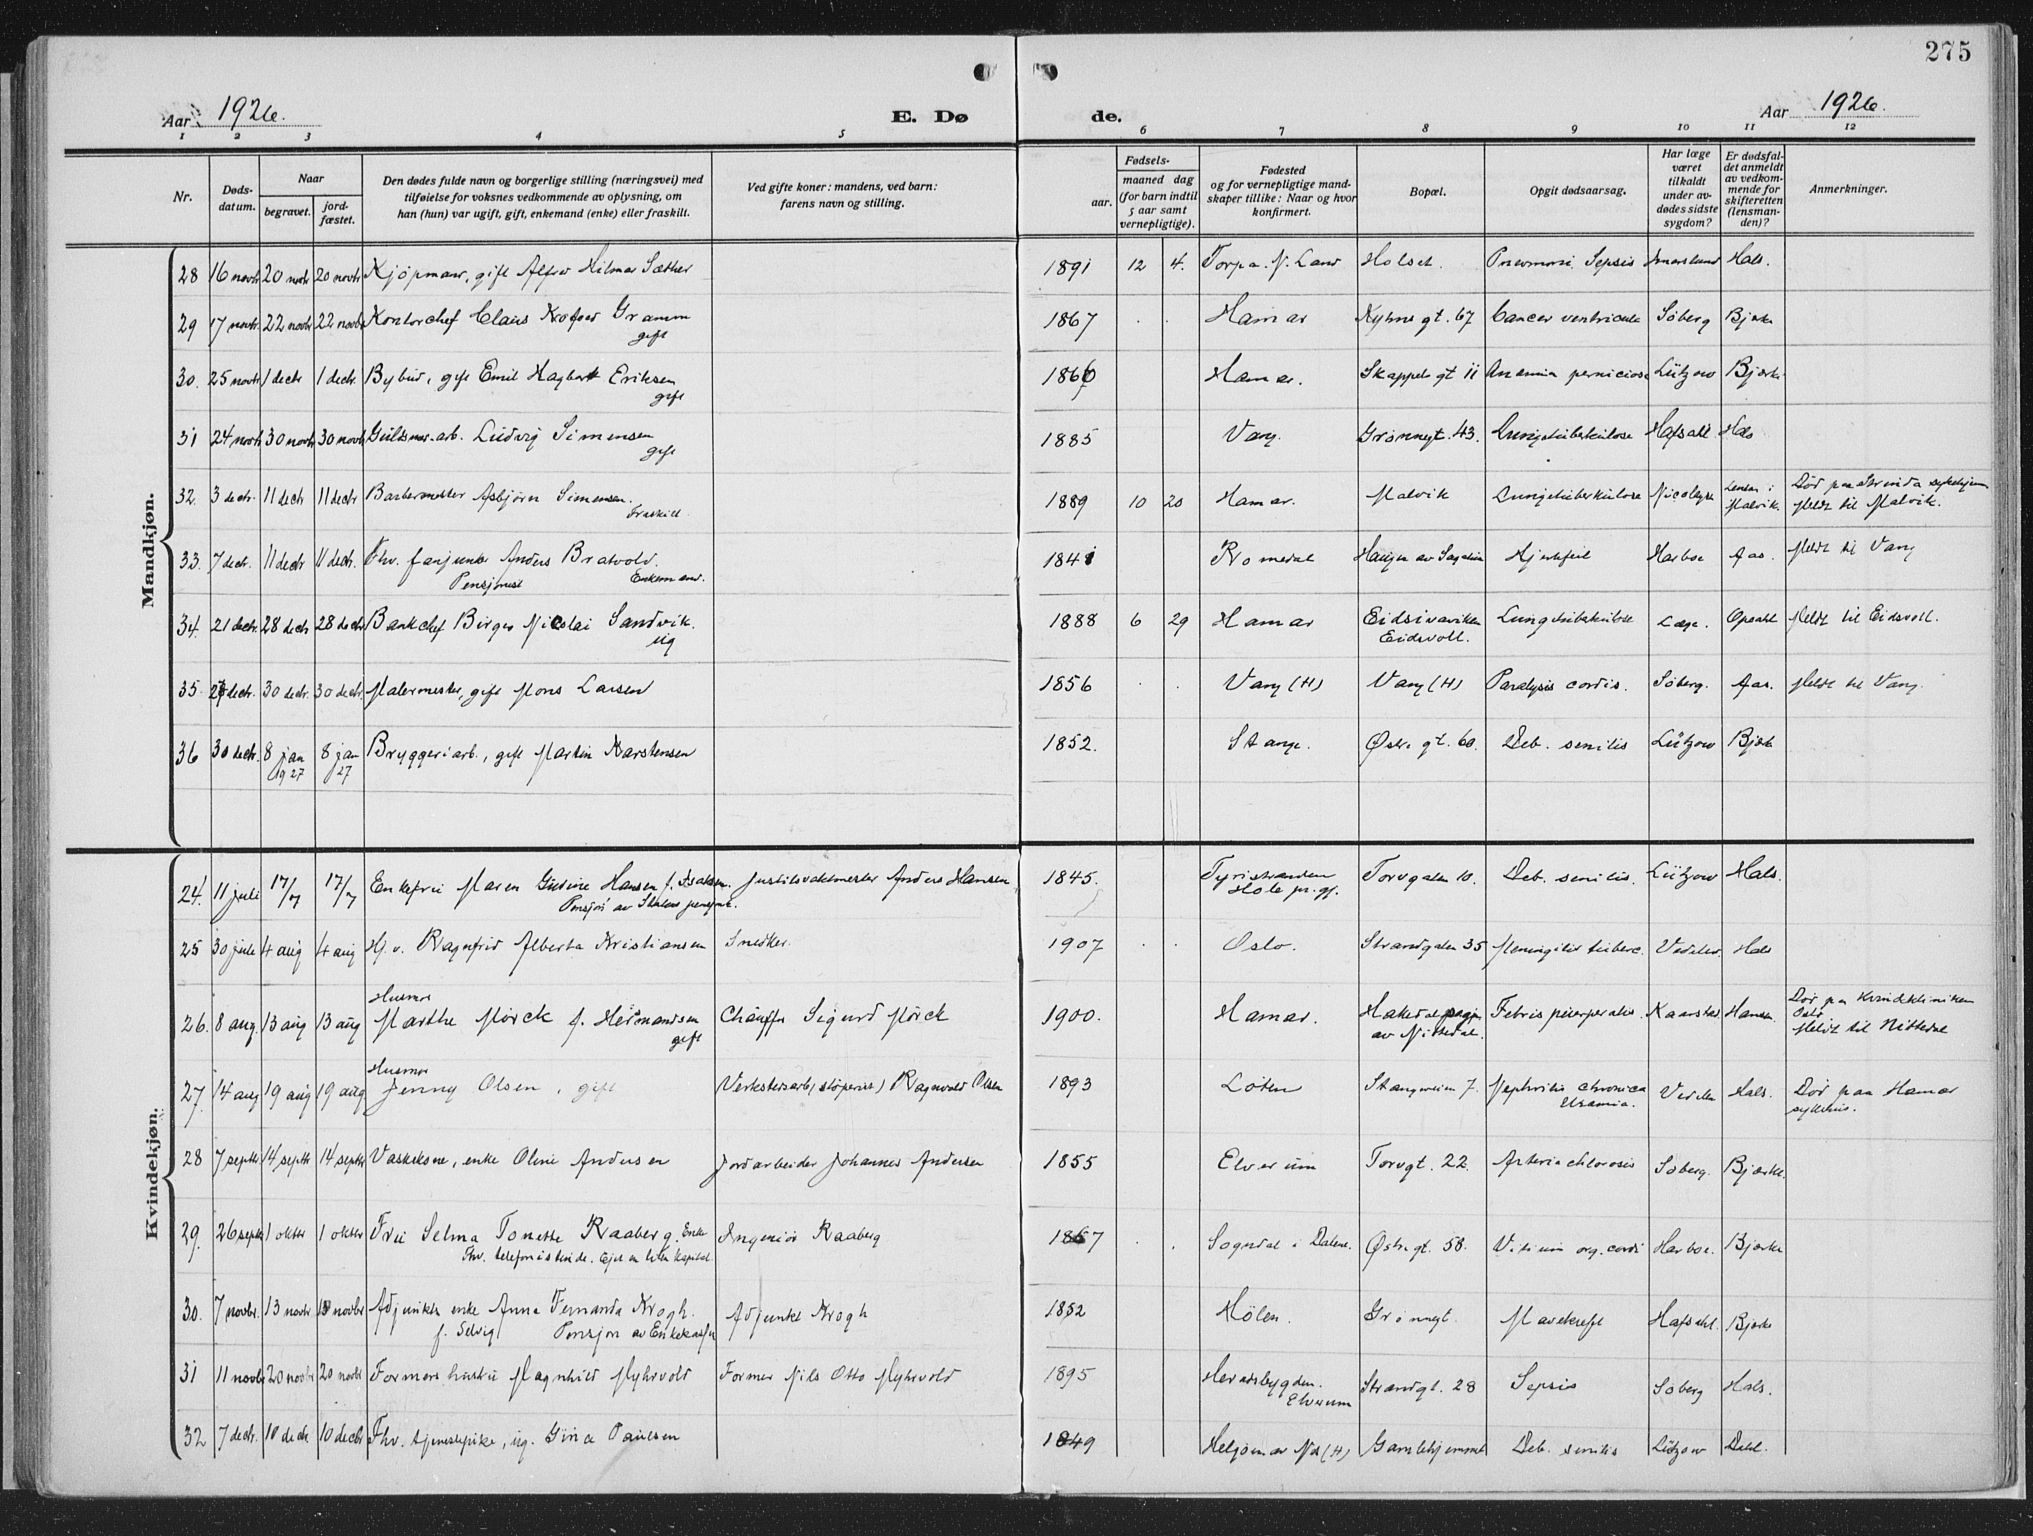 275
Aar 1926.
E. Dø
de.
Aar 1926.
1 2 3 4 5 6 7 8 9 10 11 12
Nr.
Døds-
datum.
Naar
begravet.
jord-
fæstet.
Den dødes fulde navn og borgerlige stilling (næringsvei) med
tilføielse for voksnes vedkommende av oplysning, om
han (hun) var ugift, gift, enkemand (enke) eller fraskilt.
Ved gifte koner: mandens, ved barn:
farens navn og stilling.
Fødsels-
aar.
maaned dag
(for barn indtil
5 aar samt
vernepligtige).
Fødested
og for vernepligtige mand-
skaper tillike: Naar og hvor
konfirmert.
Bopæl.
Opgit dødsaarsag.
Har læge
været
tilkaldt
under av-
dødes sidste
sygdom?
Er dødsfal-
det anmeldt
av vedkom-
mende for
skifteretten
(lensman-
den)?
Anmerkninger.
Mandkjøn.
28 16 novbr 20 novbr 20 novbr Kjøpmann, gift Alfred Hilmar Sæther 1891 12 4. Torpa. N. Land Holset. Pneumoni, Sepsis Hals.
29 17 novbr. 22 novbr 22 novbr Kontorchef Claus Gramm 1867 Hamar Kyhns gt. 67 Cancer ventriculi Søberg Bjerke
gift
30. 25 novbr 1 decbr 1 decbr. Bybud, gift Emil Hagbart Eriksen 1866 Hamar. Skappels gt 11 Anæmia perniciosa Lützow Bjerke
gift
31 24 novbr 30 novbr 30 novbr Guldsmed-arb. Ludvig Simensen 1885 Vang. Grønnegt. 43. Lungetuberkulose Hafsahl Hals
gift
32. 3 decbr. 11 decbr 11 decbr Barbermester Asbjørn Simensen. 1889 10 20 Hamar. Malvik Lungetuberkulose Lensm i Død paa Strinda sykehjem
Fraskilt. Malvik. Meldt til Malvik.
33. 7 decbr. 11 decbr 11 decbr. Fhv. fanjunker Anders Bratvold. 1841 Romedal Haugen av Hjertefeil Harboe Aas. Meldt til Vang
Pensjonist Enkemand.
34. 21 decbr. 28 decbr 28 decbr Bankchef Birger Nicolai Sandvik. 1888 6 29 Hamar Eidsivaviken Lungetuberkulose Læge. Opsahl Meldt til Eidsvoll.
ug Eidsvoll.
35. decbr. 30 decbr. 30 decbr. Malermester, gift Mons Larsen 1856 Vang (H) Vang (H) Paralysis cordis. Søberg. Aas. Meldt til Vang.
36 30 decbr. 8 jan 8 jan Bryggeriarb., gift Martin Karstensen 1852. Stange. Østre gt. 60. Deb. senilis Lützow Bjerke
1927 27
Kvindekjøn.
24. 11 juli 17/7 17/7 Enkefru Maren Gurine Hansen f. Isaksen. Justitsvaktmester Anders Hansen 1845. Tyristranden Torvgaten 10. Deb. senilis. Lützow Hals.
Pensjon av Statens pensjonsk. Hole pr.gj.
25 30 juli 4 aug 4 aug Hj.v. Ragnfrid Alberta Kristiansen Snedker. 1907 Oslo. Strandgaten 35 Meningitis tuberc. Hals
Husmor
26. 8 aug. 13 aug 13 aug Marthe Mørck f. Hermandsen Chauffør Sigurd Mørck 1900. Hamar. Hakedal Febris puerperalis. Kaarstad Hansen Død pa Kvindekliniken
gift av Nittedal. Oslo
Meldt til Nittedal
Husmor
27. 14 aug 19 aug 19 aug Jenny Olsen, gift Verkstedsarb (støperiet) Ragnvald Olsen 1893 Løten Stangeveien 7. Nephritis chronica Hals. Død paa Hamar
Uræmia. sykehus.
28 7 septbr 14 septbr 14 septbr Vaskekone, enke Oline Andersen Jordarbeider Johannes Andersen 1855 Elverum Torvgt. 22. Søberg. Bjerke.
29. 26 septbr 1 oktbr 1 oktbr Fru Selma Tonette Raaberg. Enke Ingeniør Raaberg 1867 Sogndal i Dalene. Østregt. 58. Vitium org. cordis Harboe. Bjerke
Fhv. telefonistinde. Ejet en liten kapital.
30. 7 novbr. 13 novbr 13 novbr Adjunkts enke Anna Fernanda Krogh. Adjunkt Krogh 1852 Hølen. Grønnegt. Mavekræft Hafsahl. Bjerke
f. Selvig Pensjon av Enkekassen
31 11 novbr 20 novbr 20 novbr Formers hustru Magnhild Myhrvold Former Nils Otto Myhrvold 1895 Heradsbygden. Strandgt. 28 Sepsis Søberg Hals.
Elverum
32 7 decbr. 10 decbr 10 decbr Fhv. tjenestepike, ug. Gina Paulsen 1849 Helgøen av Nes (H) Gamlehjemmet Deb. senilis Lützow Dahl.